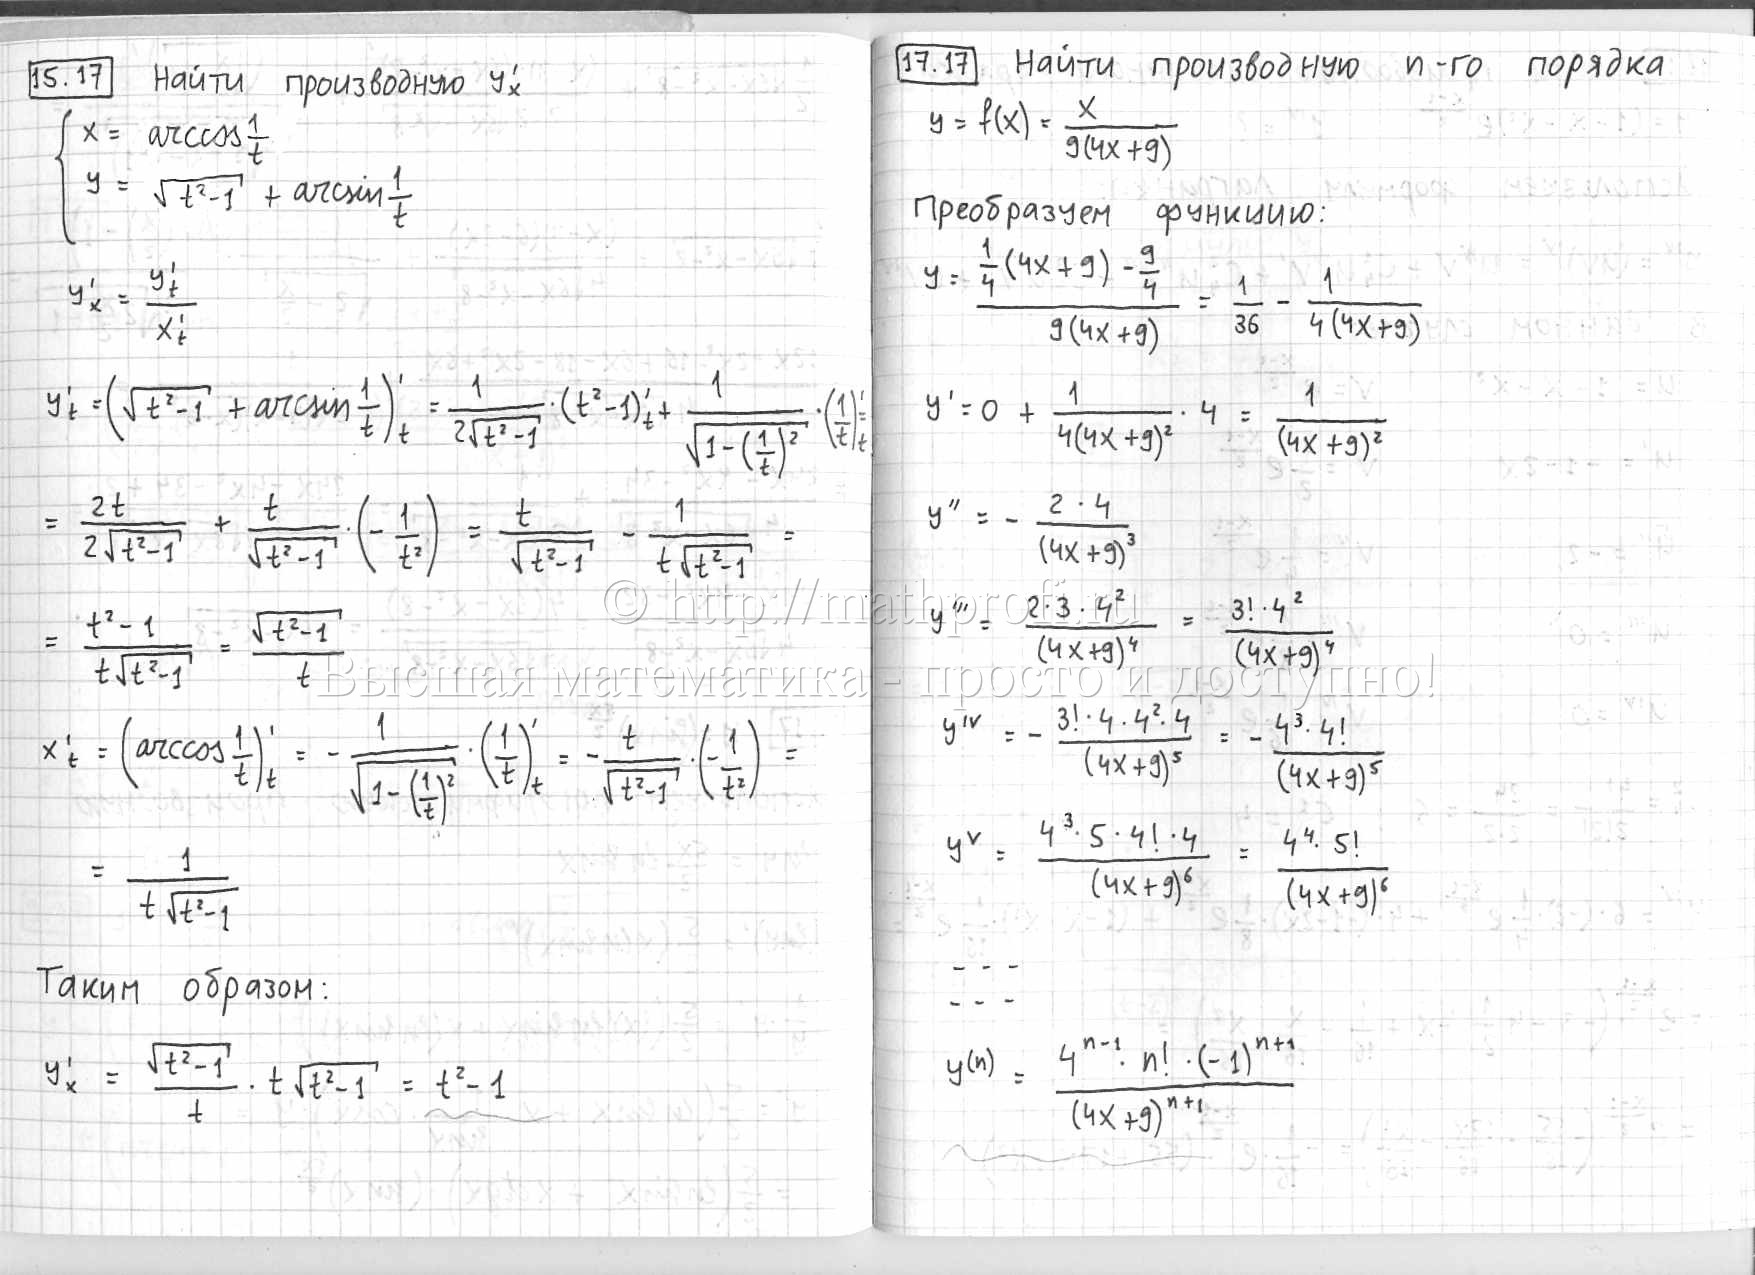 15.17 Найти производную y'ₓ
{ x = arccos 1/t
y = √(t²-1) + arcsin 1/t
y'ₓ = y'ₜ / x'ₜ
y'ₜ = (√(t²-1) + arcsin 1/t)'ₜ = 1/(2√(t²-1)) · (t²-1)'ₜ + 1/√(1-(1/t)²) · (1/t)'ₜ =
= 2t/(2√(t²-1)) + t/√(t²-1) · (-1/t²) = t/√(t²-1) - 1/(t√(t²-1)) =
= (t²-1)/(t√(t²-1)) = √(t²-1)/t
x'ₜ = (arccos 1/t)'ₜ = - 1/√(1-(1/t)²) · (1/t)'ₜ = - t/√(t²-1) · (-1/t²) =
= 1/(t√(t²-1))
Таким образом:
y'ₓ = √(t²-1)/t · t√(t²-1) = t²-1
17.17 Найти производную n-го порядка
y = f(x) = x/(9(4x+9))
Преобразуем функцию:
y = (1/4(4x+9) - 9/4)/(9(4x+9)) = 1/36 - 1/(4(4x+9))
y' = 0 + 1/(4(4x+9)²) · 4 = 1/(4x+9)²
y'' = - 2·4/(4x+9)³
y''' = 2·3·4²/(4x+9)⁴ = 3!·4²/(4x+9)⁴
y^IV = - 3!·4·4²·4/(4x+9)⁵ = - 4³·4!/(4x+9)⁵
y^V = 4³·5·4!·4/(4x+9)⁶ = 4⁴·5!/(4x+9)⁶
- - -
- - -
y⁽ⁿ⁾ = 4ⁿ⁻¹·n!·(-1)ⁿ⁺¹/(4x+9)ⁿ⁺¹
© http://mathprofi.ru
Высшая математика - просто и доступно!